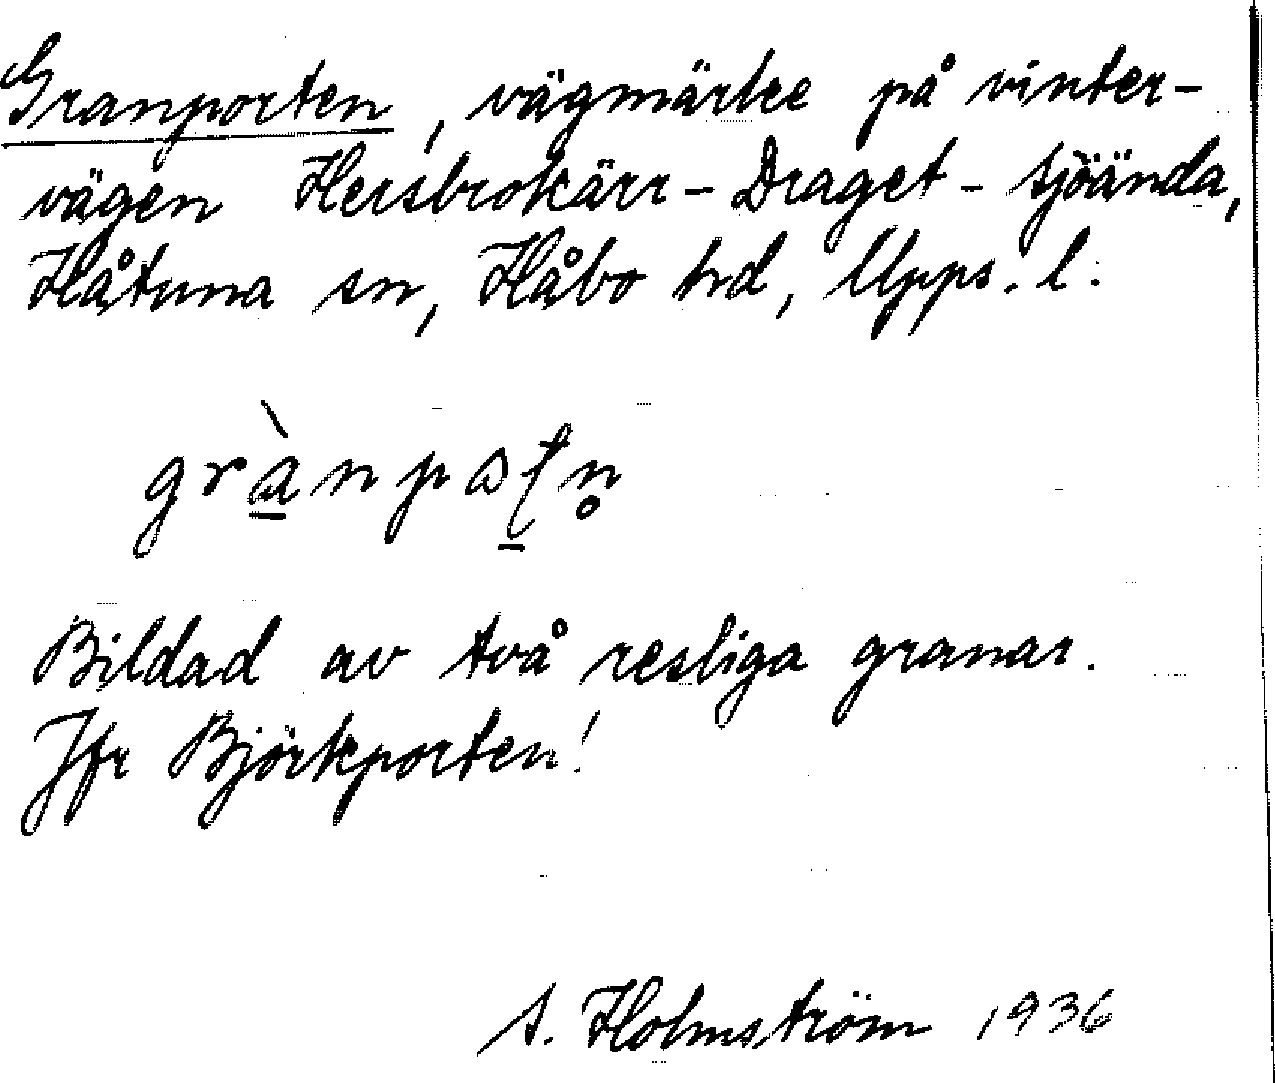 Granporten, vägmärke på vinter-
vägen Hersbrokärr - Draget - sjöända,
Håtuna sn, Håbo hd, Upps. l.
Bildad av två resliga granar.
Jfr Björkporten!
A. Holmström 1936